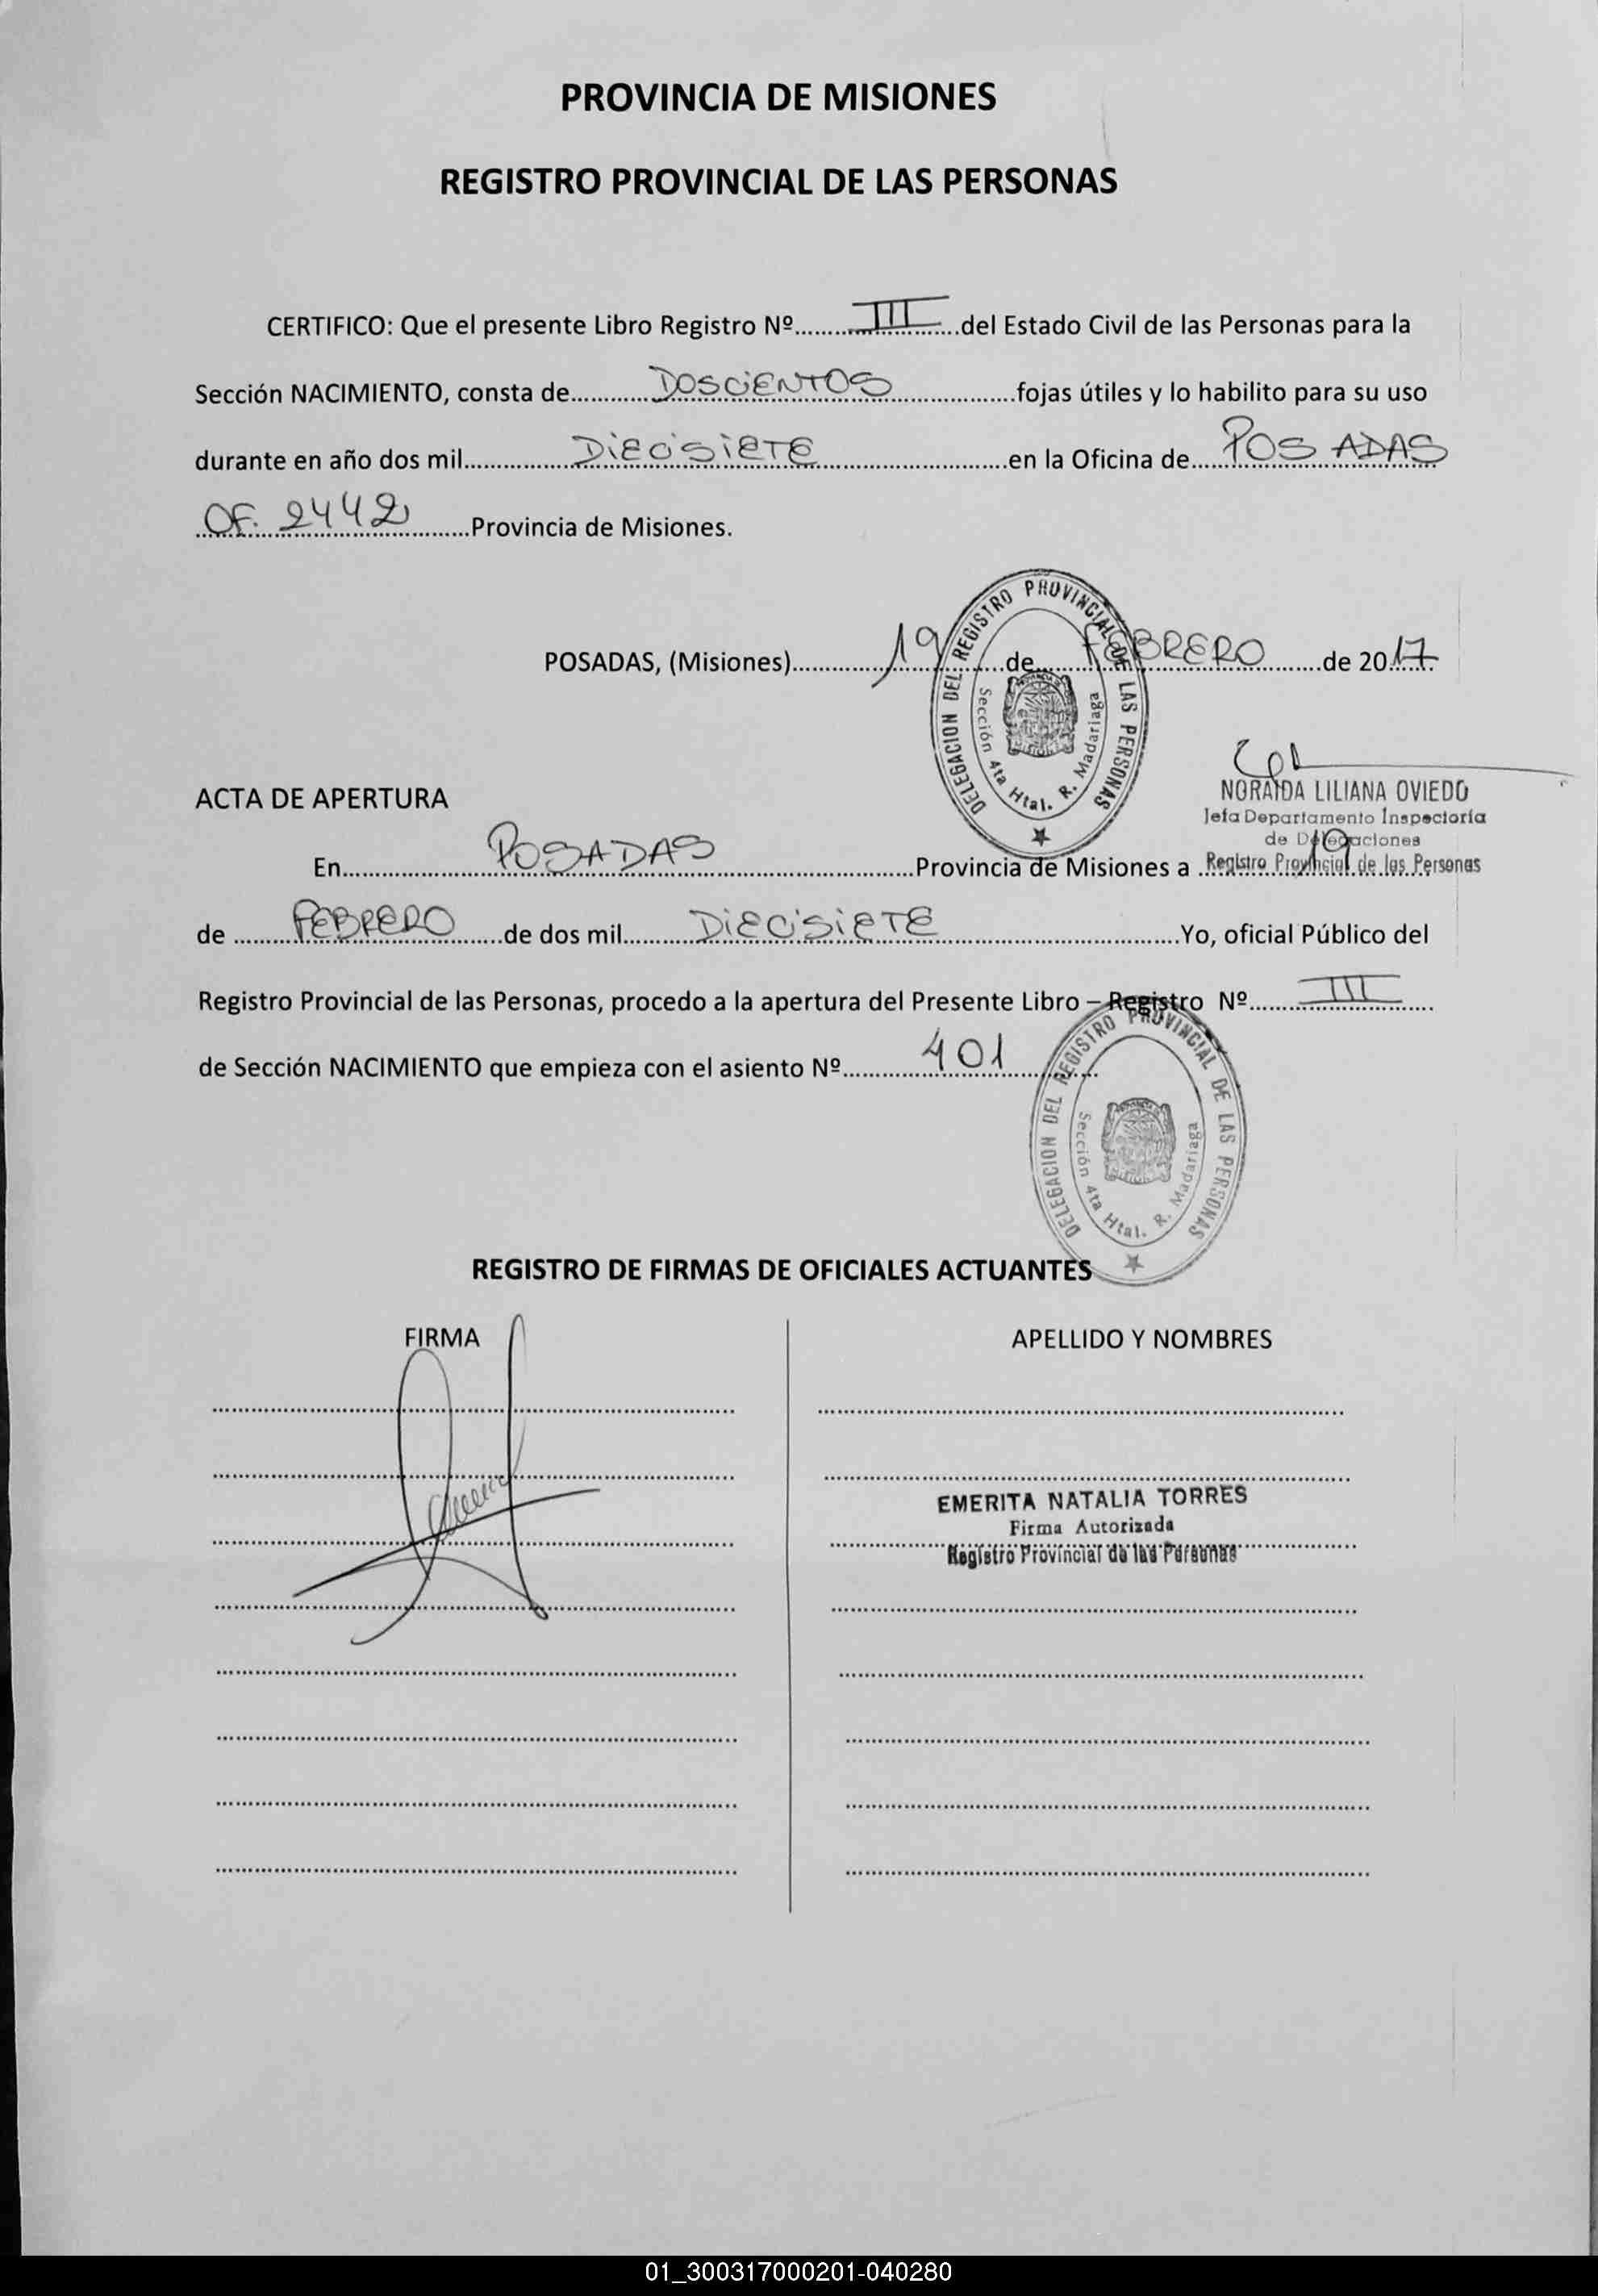 PROVINCIA DE MISIONES
REGISTRO PROVINCIAL DE LAS PERSONAS
CERTIFICO: Que el presente Libro Registro Nº.......III.......del Estado Civil de las Personas para la
Sección NACIMIENTO, consta de.......DOSCIENTOS.......fojas útiles y lo habilito para su uso
durante en año dos mil.......DIECISIETE.......en la Oficina de.......POSADAS
OF. 2442.......Provincia de Misiones.
POSADAS, (Misiones).......19.......de.......FEBRERO.......de 2017
DELEGACION DEL REGISTRO PROVINCIAL DE LAS PERSONAS
Sección 4ta Htal. R. Madariaga
NORAIDA LILIANA OVIEDO
Jefa Departamento Inspectoría
de Delegaciones
Registro Provincial de las Personas
ACTA DE APERTURA
En.......POSADAS.......Provincia de Misiones a .......19
de .......FEBRERO.......de dos mil.......DIECISIETE.......Yo, oficial Público del
Registro Provincial de las Personas, procedo a la apertura del Presente Libro – Registro Nº.......III.......
de Sección NACIMIENTO que empieza con el asiento Nº.......401.......
DELEGACION DEL REGISTRO PROVINCIAL DE LAS PERSONAS
Sección 4ta Htal. R. Madariaga
REGISTRO DE FIRMAS DE OFICIALES ACTUANTES
FIRMA APELLIDO Y NOMBRES
EMERITA NATALIA TORRES
Firma Autorizada
Registro Provincial de las Personas
01_300317000201-040280